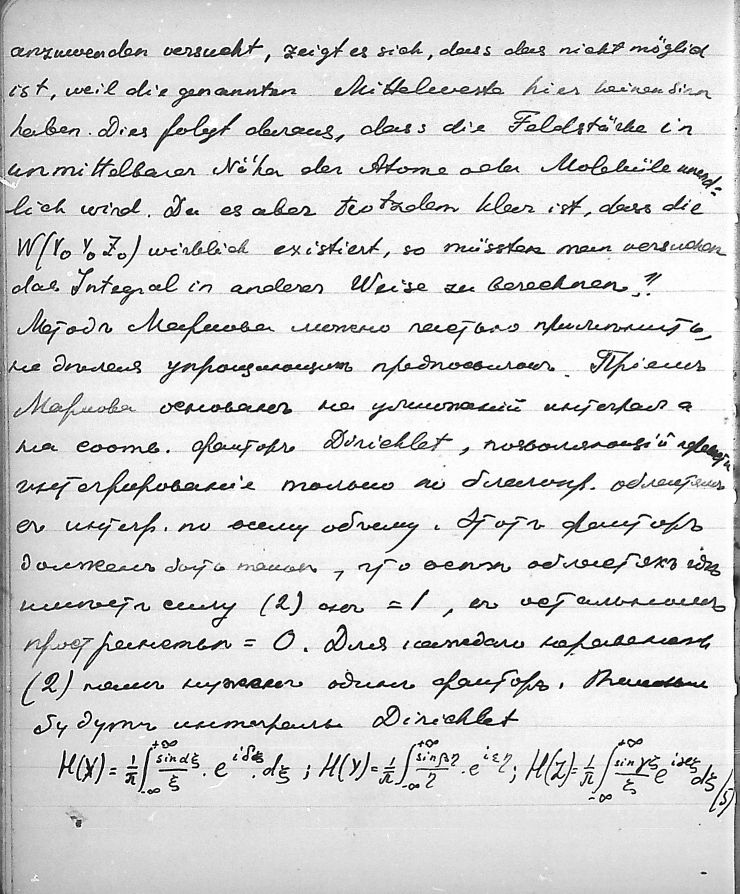 anzuwenden versucht, zeigt es sich, dass das nicht möglich
ist, weil die genannten Mittelwerte hier keinen Sinn
haben. Dies folgt daraus, dass die Feldstärke in
unmittelbarer Nähe der Atome oder Moleküle unend-
lich wird. Da es aber trotzdem klar ist, dass die
W(X₀ Y₀ Z₀) wirklich existiert, so müsste man versuchen
das Integral in anderer Weise zu berechnen."
Методъ Маркова можно примѣнить,
не дѣлая упрощающихъ предпосылокъ. Пріемъ
Маркова основанъ на умноженіи интеграла
на соотв. факторъ Dirichlet, позволяющій
интегрированіе только по областямъ
въ интегр. по всему объему. Этотъ факторъ
долженъ быть такимъ, что въ областяхъ гдѣ
имѣетъ силу (2) онъ = 1, въ остальномъ
пространствѣ = 0. Для каждаго неравенства
(2) намъ нуженъ одинъ факторъ.
будутъ интегралы Dirichlet
H(X) = 1/π ∫_{-∞}^{+∞} sin αξ/ξ . e^{iδξ} . dξ ; H(Y) = 1/π ∫_{-∞}^{+∞} sin βη/η . e^{iεη} ; H(Z) = 1/π ∫_{-∞}^{+∞} sin γξ/ξ e^{iæξ} dξ (5)